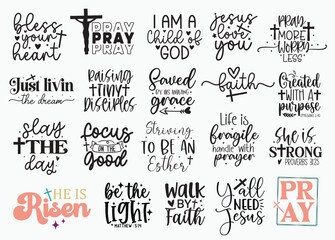 bless
your
heart
PRAY
PRAY
PRAY
I AM A
child of
GOD
Jesus
love
you
PRAY
MORE
WORRY
LESS
Just livin
the dream
RAISING
TINY
Disciples
Saved
BY HIS AMAZING
grace
faith
CREATED
WITH A
PURPOSE
slay
THE
DAY
focus
ON THE
good
Striving
TO BE AN
ESTHER
Life is
fragile
handle with
prayer
She is
STRONG
PROVERBS 31:25
HE IS
Risen
be the
LIGHT
MATTHEW 5:14
WALK
BY
FAITH
Y'all
NEED
Jesus
PR
AY